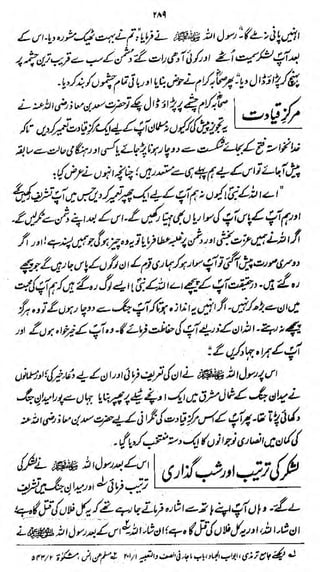 ۲۸۹
انہیں پانی نہ ملے گا“ رسول اللہ ﷺ نے فرمایا: تم نے بہت ٹھیک مشورہ دیا۔ اس کے
بعد آپ لشکر سمیت اُٹھے اور کوئی آدھی رات گئے دشمن کے سب سے قریب ترین چشمہ پر
پہنچ کر پڑاؤ ڈال دیا۔ پھر صحابہ کرام نے حوض بنایا اور باقی تمام چشموں کو بند کر دیا۔
مرکزِ قیادت
صحابہ کرام چشمے پر پڑاؤ ڈال چکے تو حضرت سعد بن معاذ رضی اللہ عنہ نے
یہ تجویز پیش کی کہ کیوں نہ مسلمان آپ کے لیے ایک مرکزِ قیادت تعمیر کر دیں تاکہ
خدانخواستہ فتح کے بجائے شکست سے دوچار ہونا پڑ جائے یا کسی اور ہنگامی حالت سے سابقہ
پیش آجائے تو اس کے لیے ہم پہلے ہی سے مستعد رہیں؛ چنانچہ انہوں نے عرض کیا:
”اے اللہ کے نبی! کیوں نہ ہم آپ کے لیے ایک چھپر تعمیر کر دیں جس میں آپ تشریف رکھیں گے
اور ہم آپ کے پاس آپ کی سواریاں بھی مہیا رکھیں گے۔ اس کے بعد اپنے دشمن سے ٹکر لیں گے۔
اگر اللہ نے ہمیں عزت بخشی اور دشمن پر غلبہ عطا فرمایا تو یہ وہ چیز ہوگی جو ہمیں پسند ہے؛ اور اگر
دوسری صورت پیش آگئی تو آپ سوار ہو کر ہماری قوم کے ان لوگوں کے پاس جا رہیں گے جو پیچھے
رہ گئے ہیں۔ درحقیقت آپ کے پیچھے اے اللہ کے نبی! ایسے لوگ رہ گئے ہیں کہ ہم آپ کی محبت
میں ان سے بڑھ کر نہیں۔ اگر انہیں یہ اندازہ ہوتا کہ آپ جنگ سے دوچار ہوں گے تو وہ ہرگز
پیچھے نہ رہتے۔ اللہ ان کے ذریعے آپ کی حفاظت فرمائے گا۔ وہ آپ کے خیر خواہ ہوں گے اور
آپ کے ہمراہ جہاد کریں گے“
اس پر رسول اللہ ﷺ نے ان کی تعریف فرمائی اور ان کے لیے دعائے خیر کی؛ اور مسلمانوں
نے میدانِ جنگ کے شمال مشرق میں ایک اونچے ٹیلے پر چھپر بنایا جہاں سے پورا میدانِ جنگ
دکھائی پڑتا تھا۔ پھر آپ کے اس مرکزِ قیادت کی نگرانی کے لیے حضرت سعد بن معاذ رضی اللہ عنہ
کی کمان میں انصاری نوجوانوں کا ایک دستہ منتخب کر دیا گیا۔
لشکر کی ترتیب اور شب گذاری
اس کے بعد رسول اللہ ﷺ نے لشکر کی
ترتیب فرمائی اور میدانِ جنگ میں تشریف
لے گئے۔ وہاں آپ اپنے ہاتھ سے اشارہ فرماتے جا رہے تھے کہ یہ کل فلاں کی قتل گاہ ہے
ان شاء اللہ، اور یہ کل فلاں کی قتل گاہ ہے؛ ان شاء اللہ
اس کے بعد رسول اللہ ﷺ نے
دیکھئے جامع ترمذی، ابواب الجہاد، باب ماجاء فی الصف والتعبیۃ ۱/۲۰۱ مسلم عن انس، مشکوٰۃ ۲/۵۴۳